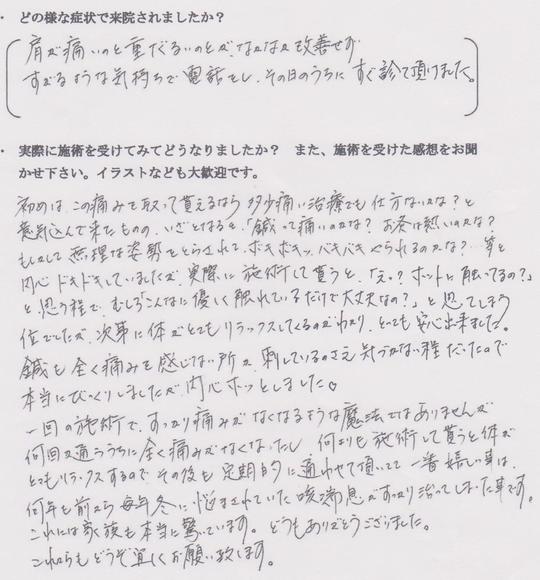 ・ どの様な症状で来院されましたか？
肩が痛いのと重だるいのとが、なかなか改善せず
すがるような気持ちで電話をし、その日のうちに すぐ診て頂けました。
・ 実際に施術を受けてみてどうなりましたか？ また、施術を受けた感想をお聞
かせ下さい。イラストなども大歓迎です。
初めは、この痛みを取って貰えるなら 多少痛い治療でも仕方ないかな？と
意気込んで来たものの、いざとなると、「鍼って痛いのかな？ お灸は熱いのかな？
もしかして無理な姿勢をとらされて、ボキボキッ、バキバキやられるのかな？」等と
内心ドキドキしていましたが、実際に施術して貰うと、「えっ？ ホントに触ってるの？」
と思う程で、むしろ「こんなに優しく触れているだけで大丈夫なの？」と思ってしまう
位でしたが、次第に体がとてもリラックスしてくるのがわかり、とっても安心出来ました。
鍼も全く痛みを感じない所か、刺しているのさえ気づかない程だったので
本当にびっくりしましたが、内心ホッとしました♡
一回の施術で、すっかり痛みがなくなるような魔法ではありませんが
何回か通ううちに全く痛みがなくなったし、何よりも施術して貰うと体が
とてもリラックスするので その後も定期的に通わせて頂いてて 一番嬉しい事は、
何年も前から毎年冬に悩まされていた咳喘息がすっかり治ってしまった事です。
これには家族も本当に驚いています。どうもありがとうございました。
これからもどうぞ宜しくお願い致します。